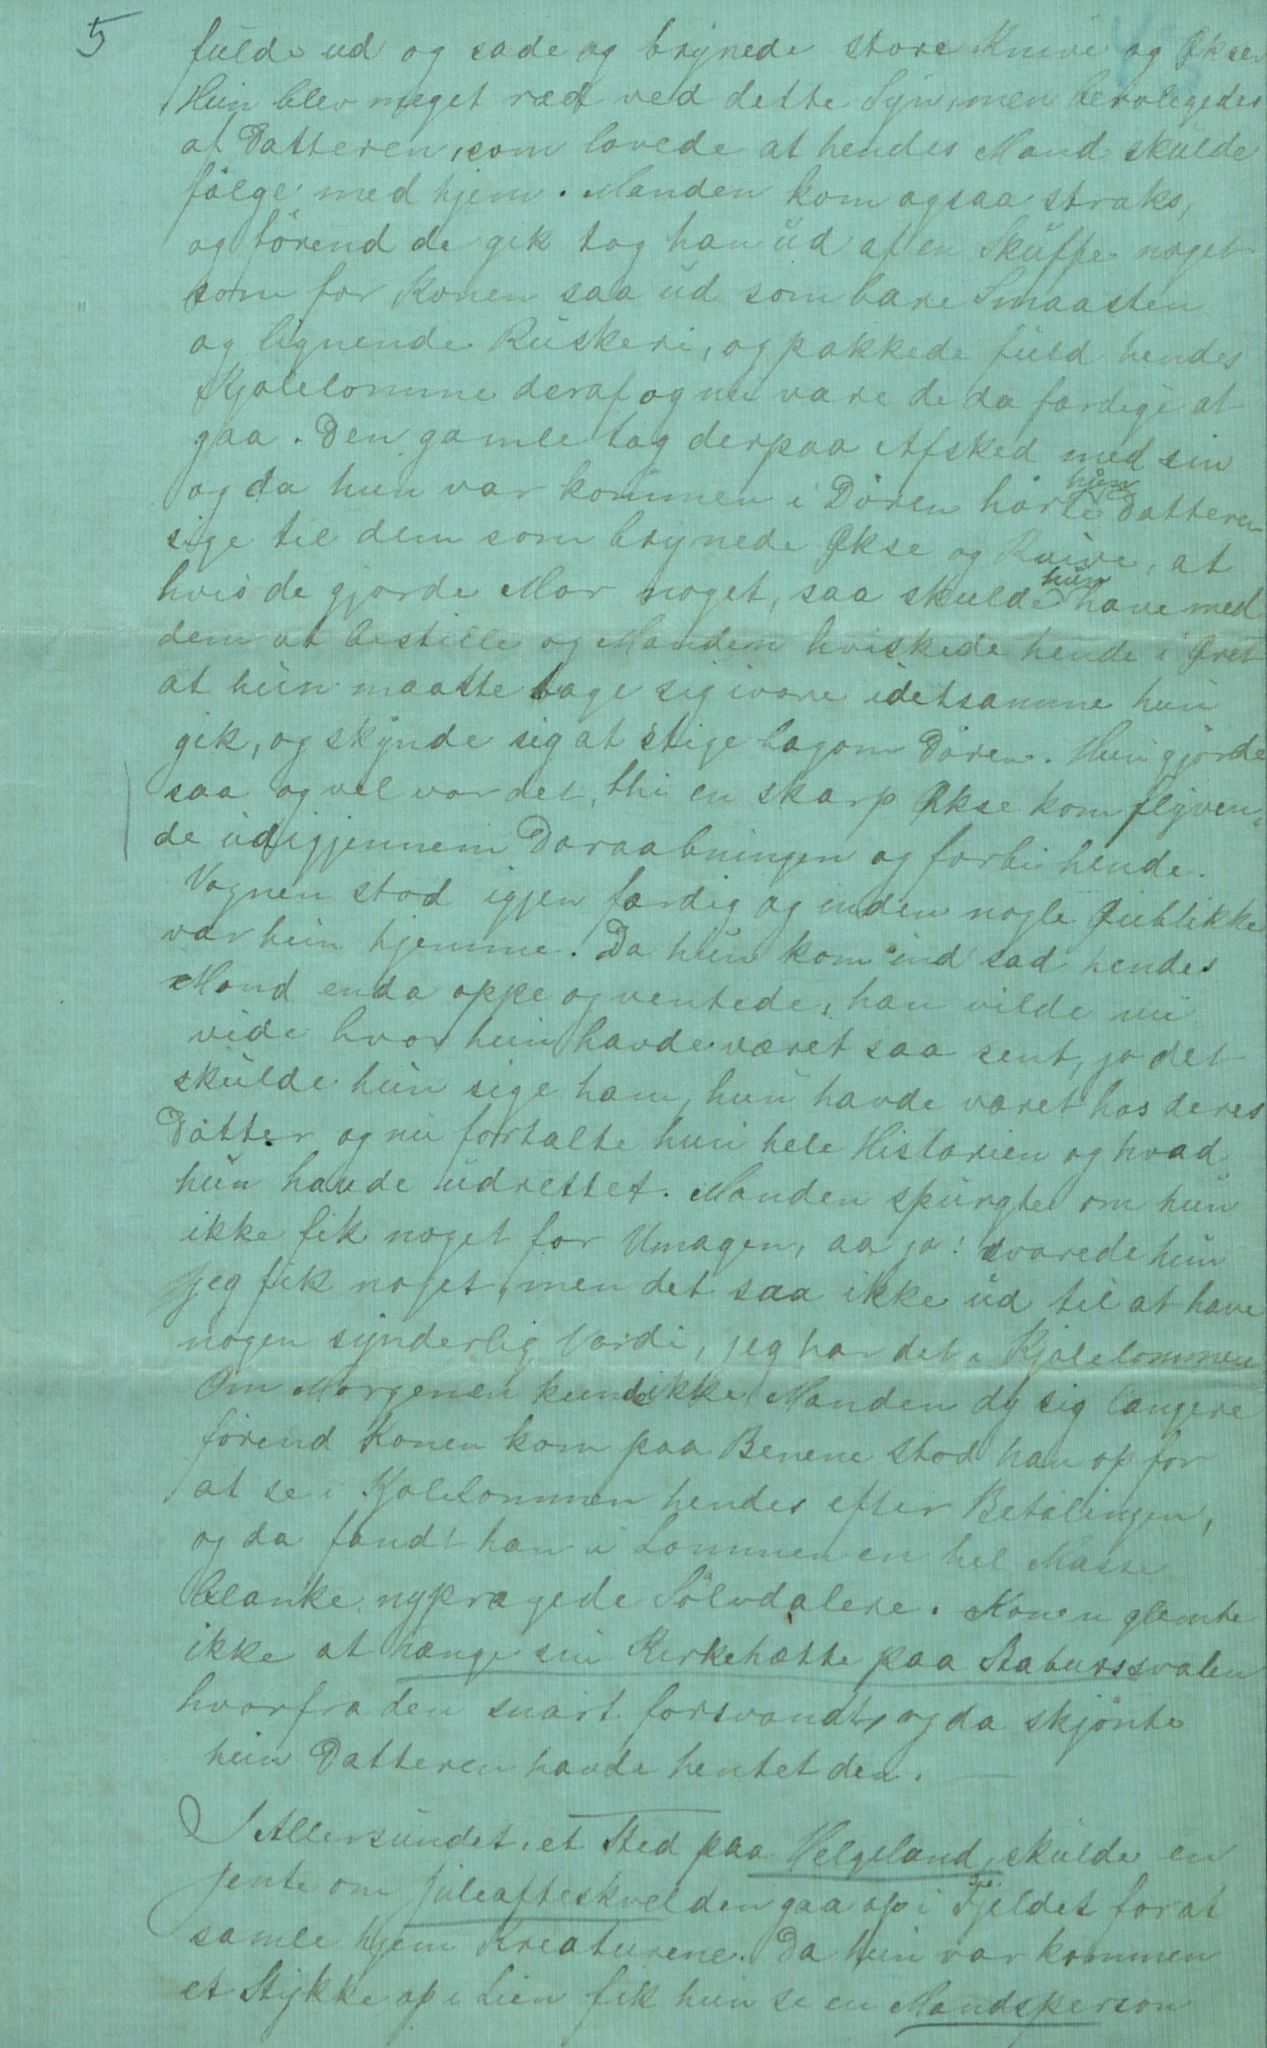 5
fulde ud og sade og brynede store Knive og Økser
Hun blev meget ræd ved dette Syn, men beroligedes
af Datteren, som lovede at hendes Mand skulde
følge med hjem. Manden kom ogsaa straks,
og førend de gik tog han ud af en Skuffe noget
som for Konen saa ud som bare Smaasten
og lignende Ruskeri, og pakkede fuld hendes
Kjolelomme deraf og nu vare de da færdige at
gaa. Den gamle tog derpaa Afsked med sin
og da hun var kommen i Døren hørte hun Datteren
sige til dem som brynede Økse og Knive, at
hvis de gjorde Mor noget, saa skulde hun have med
dem at bestille og Manden hviskede hende i Øret
at hun maatte tage sig ivare idetsamme hun
gik, og skynde sig at stige bagom Døren. Hun gjorde
saa og vel var det, thi en skarp Økse kom flyven-
de ud igjennem Døraabningen og forbi hende.
Vognen stod igjen færdig og inden nogle Øieblikke
var hun hjemme. Da hun kom ind sad hendes
Mand enda oppe og ventede, han vilde nu
vide hvor hun havde været saa sent, jo det
skulde hun sige ham, hun havde været hos deres
Datter og nu fortalte hun hele Historien og hvad
hun havde udrettet. Manden spurgte om hun
ikke fik noget for Umagen, aa jo! svarede hun
jeg fik noget, men det saa ikke ud til at have
nogen synderlig Værdi, jeg har det i Kjolelommen
Om Morgenen kunde ikke Manden dy sig længere
førend Konen kom paa Benene stod han op for
at se i Kjolelommen hendes efter Betalingen,
og da fandt han i Lommen en hel Masse
blanke nyprægede Sølvdalere. Konen glemte
ikke at hænge sin Kirkehætte paa Stabursvalen
hvorfra den snart forsvandt, og da skjønte
hun Datteren havde hentet den.
I Allersundet, et Sted paa Helgeland, skulde en
Jente om juleafteskvelden gaa op i Fjeldet for at
samle hjem Kreaturene. Da hun var kommen
et Stykke op i Lien fik hun se en Mandsperson